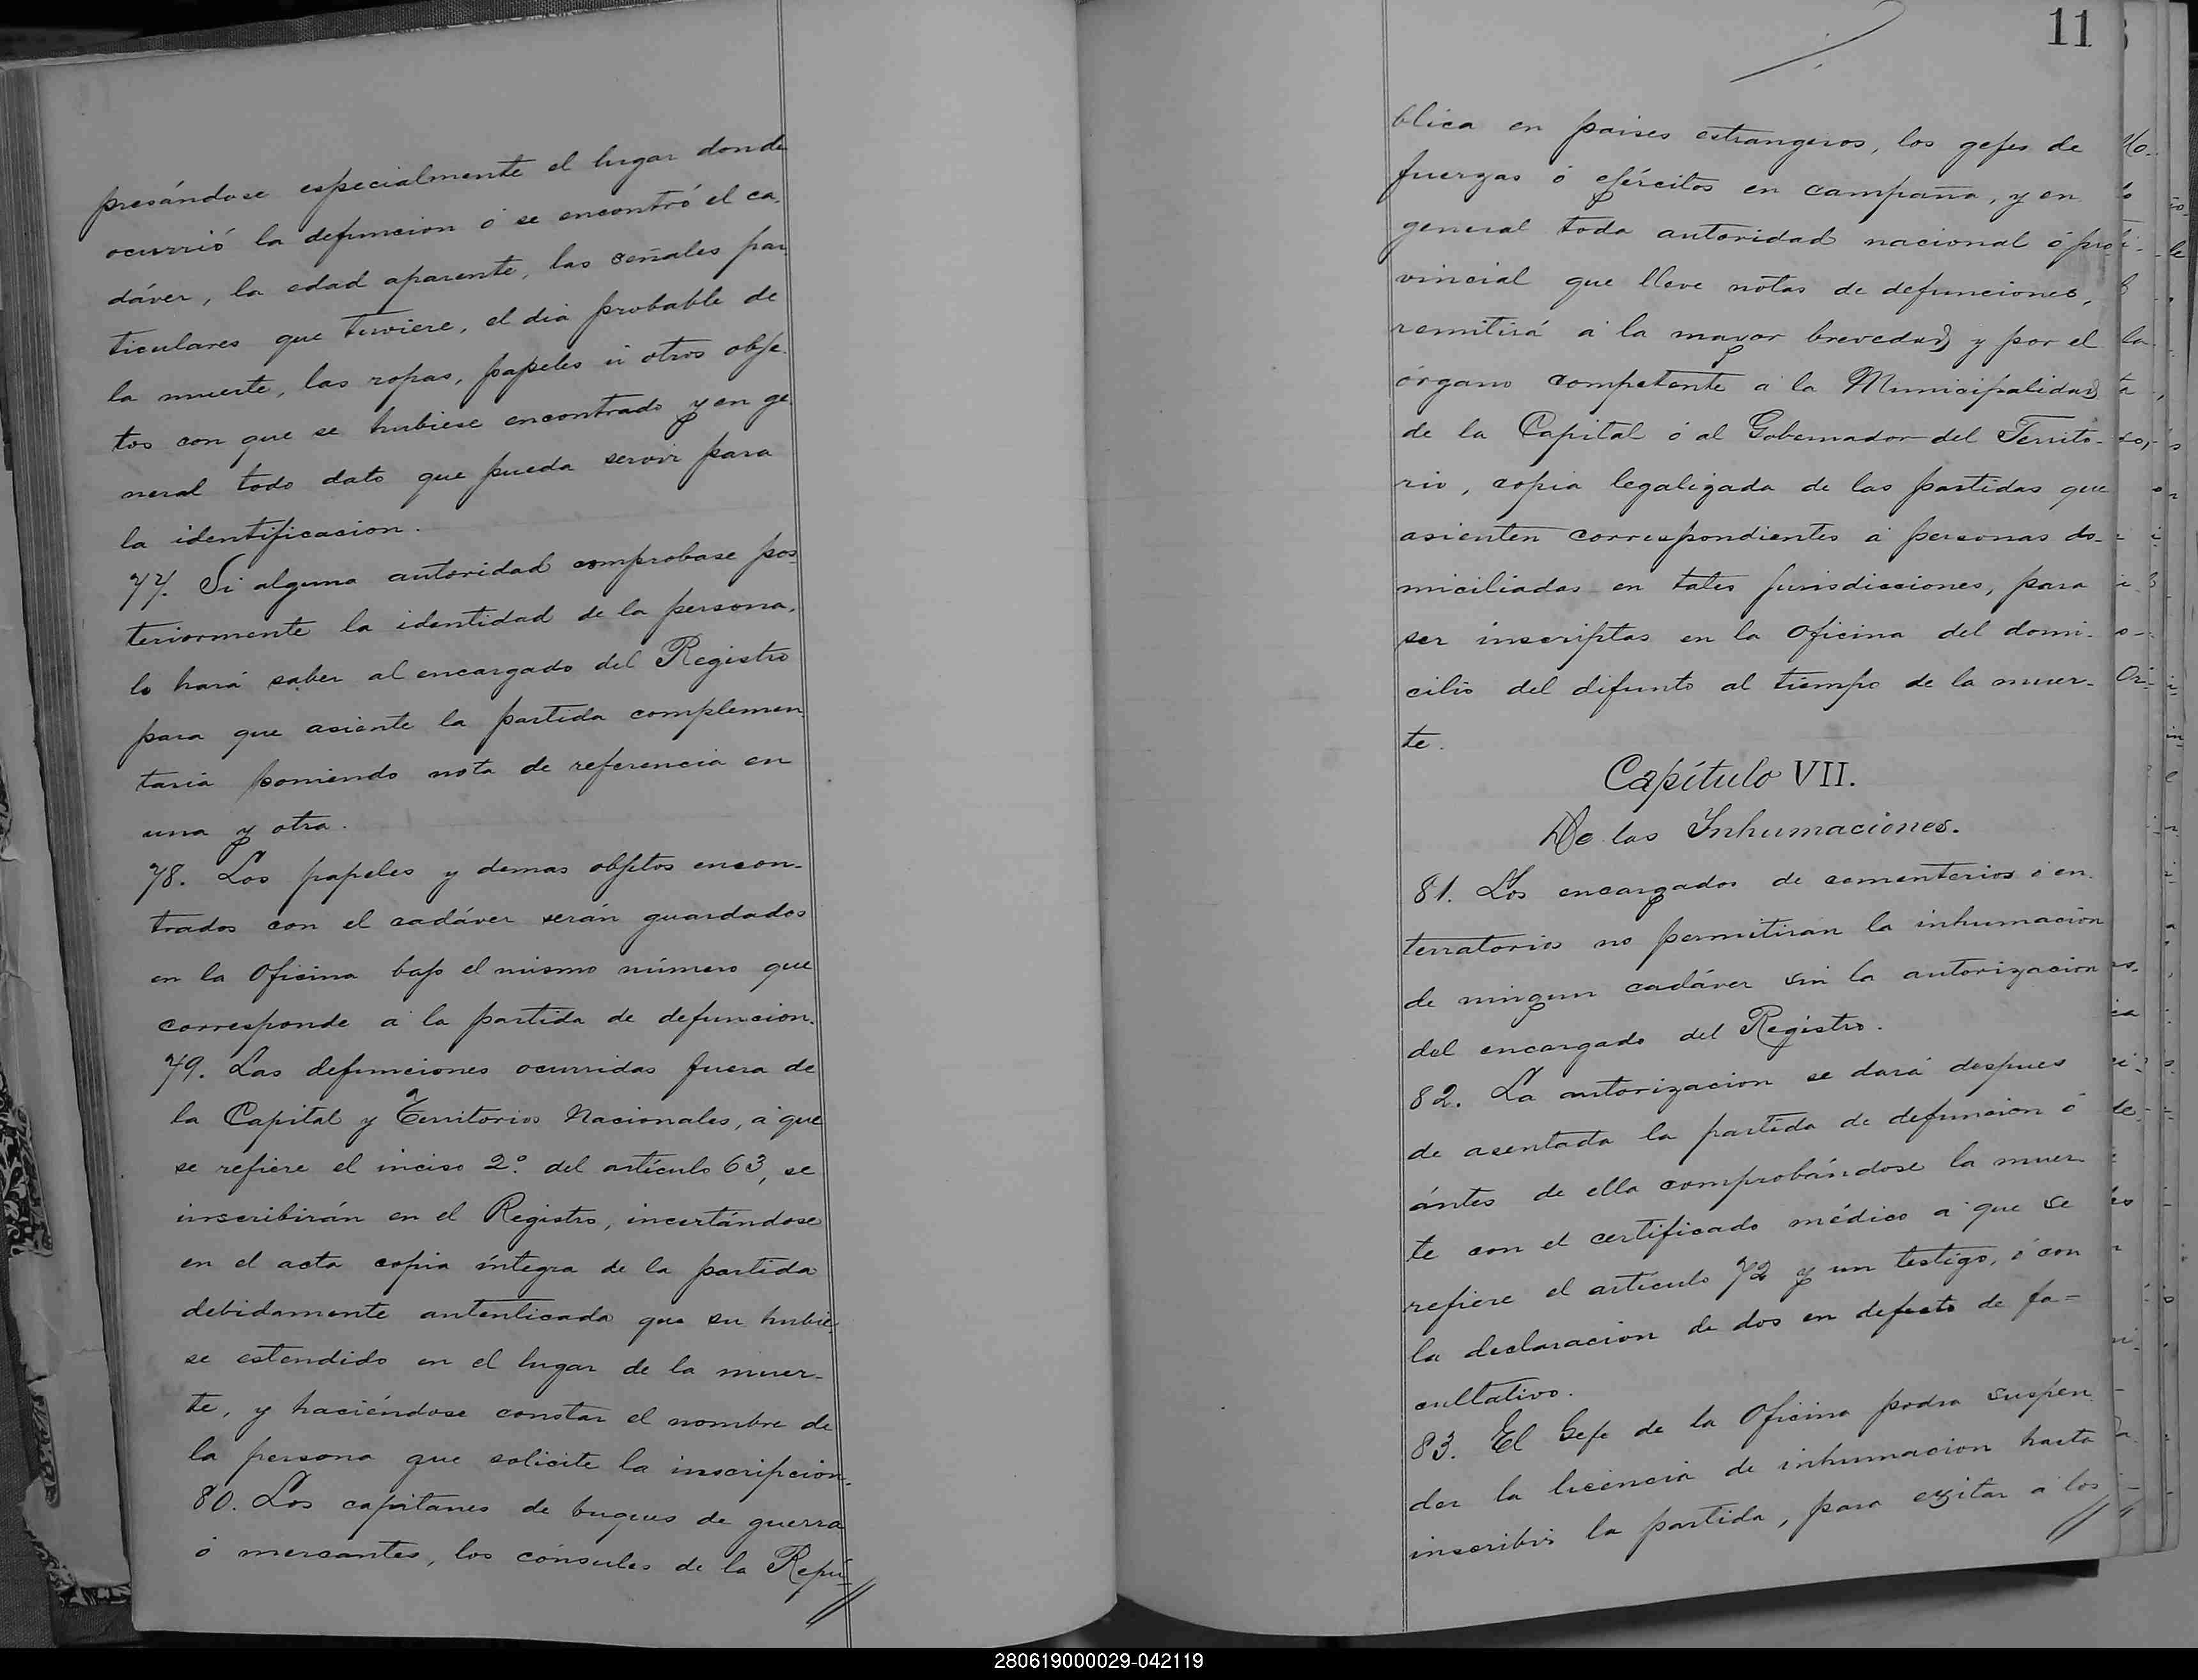 presándose especialmente el lugar donde
ocurrió la defuncion ó se encontró el ca-
dáver, la edad aparente, las señales par-
ticulares que tuviere, el dia probable de
la muerte, las ropas, papeles ú otros obje-
tos con que se hubiese encontrado y en ge-
neral todo dato que pueda servir para
la identificacion.
77. Si alguna autoridad comprobase pos-
teriormente la identidad de la persona,
lo hará saber al encargado del Registro
para que asiente la partida complemen-
taria poniendo nota de referencia en
una y otra.
78. Los papeles y demas objetos encon-
trados con el cadáver serán guardados
en la Oficina bajo el mismo número que
corresponde á la partida de defuncion.
79. Las defunciones ocurridas fuera de
la Capital y Territorios Nacionales, á que
se refiere el inciso 2º. del artículo 63, se
inscribirán en el Registro, incertándose
en el acta copia íntegra de la partida
debidamente autenticada que su hubie-
se estendido en el lugar de la muer-
te, y haciéndose constar el nombre de
la persona que solicite la inscripcion.
80. Los capitanes de buques de guerra
ó mercantes, los cónsules de la Repú-
11
blica en paises estrangeros, los gefes de
fuerzas ó ejércitos en campaña, y en
general toda autoridad nacional ó pro-
vincial que lleve notas de defunciones,
remitirá á la mayor brevedad y por el
órgano competente á la Municipalidad
de la Capital ó al Gobernador del Territo-
rio, copia legalizada de las partidas que
asienten correspondientes á personas do-
miciliadas en tales jurisdicciones, para
ser inscriptas en la Oficina del domi-
cilio del difunto al tiempo de la muer-
te.
Capítulo VII.
De las Inhumaciones.
81. Los encargados de cementerios ó en-
terratorios no permitiran la inhumacion
de ningun cadáver sin la autorizacion
del encargado del Registro.
82. La autorizacion se dará despues
de asentada la partida de defuncion ó
ántes de ella comprobándose la muer-
te con el certificado médico á que se
refiere el artículo 72 y un testigo, ó con
la declaracion de dos en defecto de fa=
cultativo.
83. El Gefe de la Oficina podrá suspen-
der la licencia de inhumacion hasta
inscribir la partida, para evitar á los
280619000029-042119